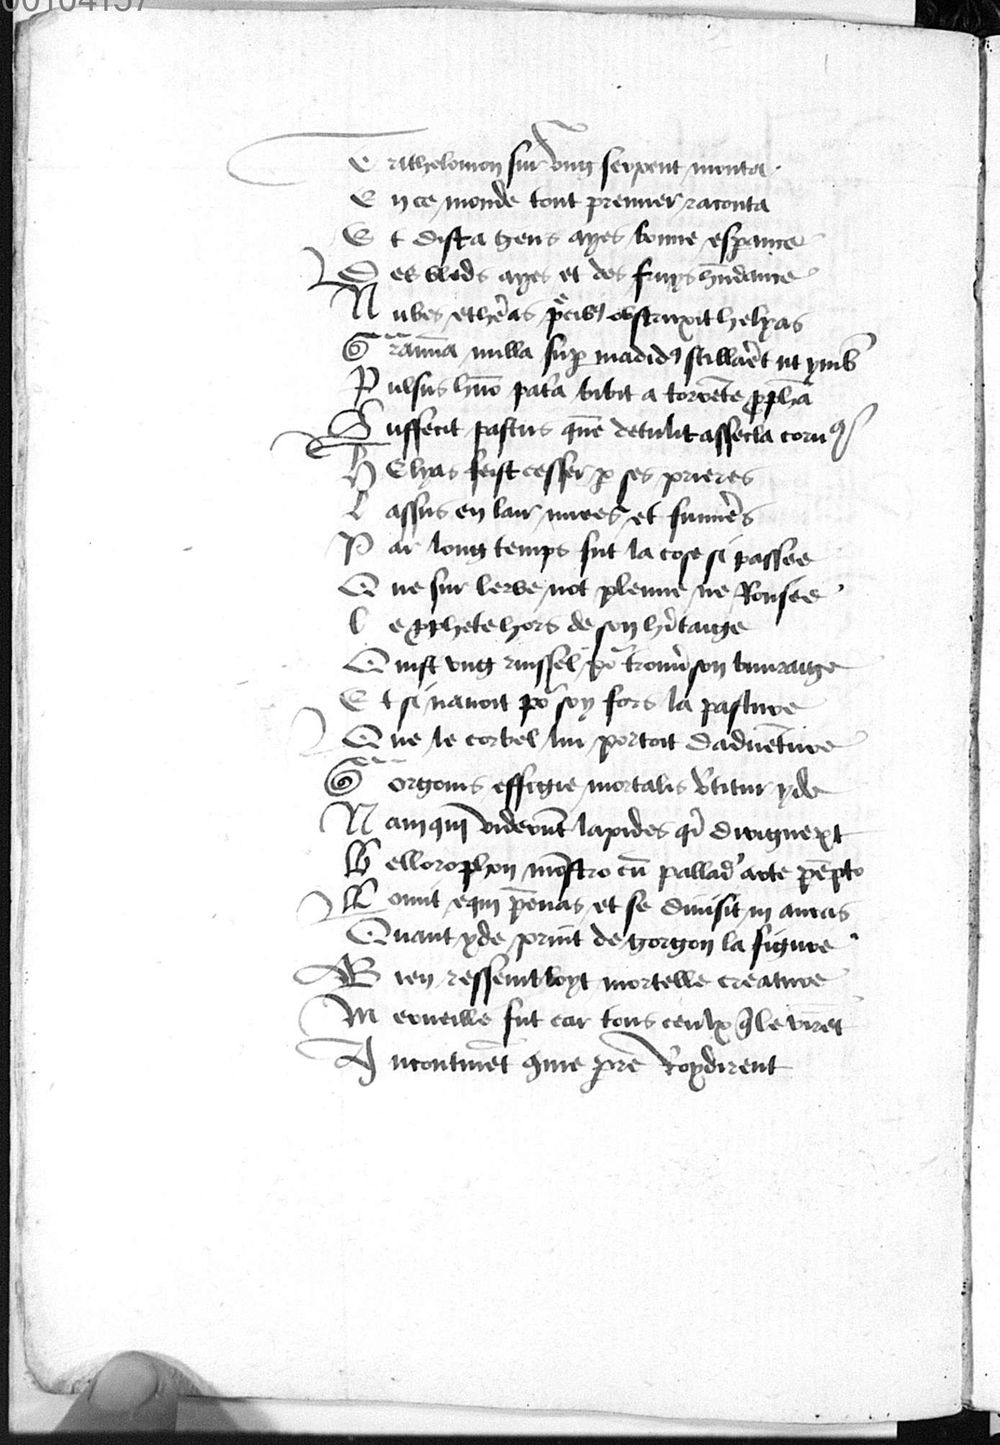 00104157
Trithelomon sur vung serpent monta
En ce monde tout premier raconta
Et dist a gens ayes bonne espance
Des bleds ayes et des fruys hūdance
Nubes ethēas p̄cib9 obstruxit helyas
Grāina nulla sup madid9 stillaēt ut ymb
Pulsus hūo pat̄a bibit a torēte pphā
Suffecit pastus quē detulit assecla coru9
Helyas feist cesser p ses prieres
Lassus en lair nuees et fumiēs
Par long temps fut la cose si passee
Que sur lerbe not pleuue ne Rousee
Le pphete hors de son hītaige
Quist vng ruissel po trouū son buuraige
Et si nauoit po soy fors la pasture
Que le corbel lui portoit daduēture
Gorgonis effigie mortalis vtitur yde
Nam qui viderūt lapides diriguerūt
Bellorophon mōstro cū pallad arte pēpto
Romit equi pēnas et se diuisit in auras
Quant yde print de gorgon la figure
Bien ressemboyt mortelle creature
Merueille fut car tous ceulx q le virēt
Incontinēt 9me piere Roydirent